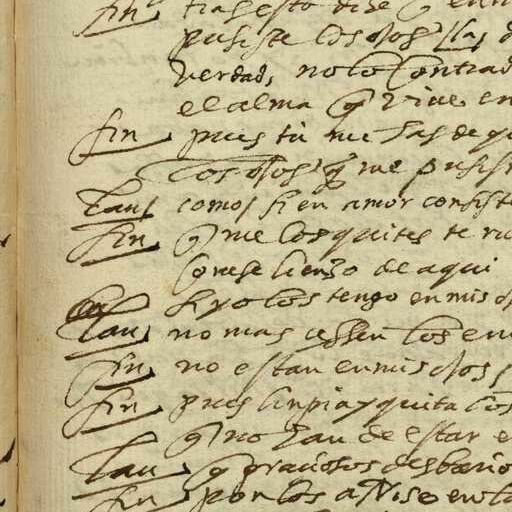 fin tras esto dise q en m
pusiste los ojos llas d
verdad, no lo contrad
el alma q vive en
fin pues tu me has de qu
los ojos q me pusist
Lau, como, si en amor consiste
fin q me los quites te ru
con ese lienzo de aqui
si yo los tengo en mis o
Lau, no mas cessen los en
fin no estan en mis ojos s
fin pues linpia y quita los
q no han de estar e
Lau q graciosos desbario
fin por los a en la